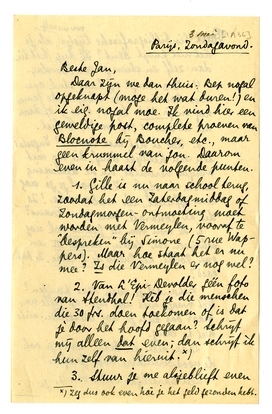 3 mei
Parijs, Zondagavond.
Beste Jan,
Daar zijn we dan thuis. Bep nogal
opgeknapt (moge het wat duren!) en
ik eig. nogal moe. Ik vind hier een
geweldige post, complete proeven van
Blocnote bij Bouches, etc., maar
geen krummel van jou. Daarom
even in haast de volgende punten.
1. Gille is nu naar school terug,
zoodat het een Zaterdagmiddag of
Zondagmorgen-ontmoeting moet
worden met Vermeylen, vooraf te
"bespreken" bij Simone (5 rue Wap-
pers). Maar hoe staat het er nu
mee? Is die Vermeylen er nog wel?
2. Van L'Epi-Devolder géén foto
van Stendhal! Heb je die menschen
die 30 frs. doen toekomen of is dat
je door het hoofd gegaan? Schrijf
mij alleen dat even; dan schrijf ik
hun zelf van hieruit.*)
3. Stuur je me alsjeblieft even
*) Zeg dus ook even hoe je het geld gezonden hebt.